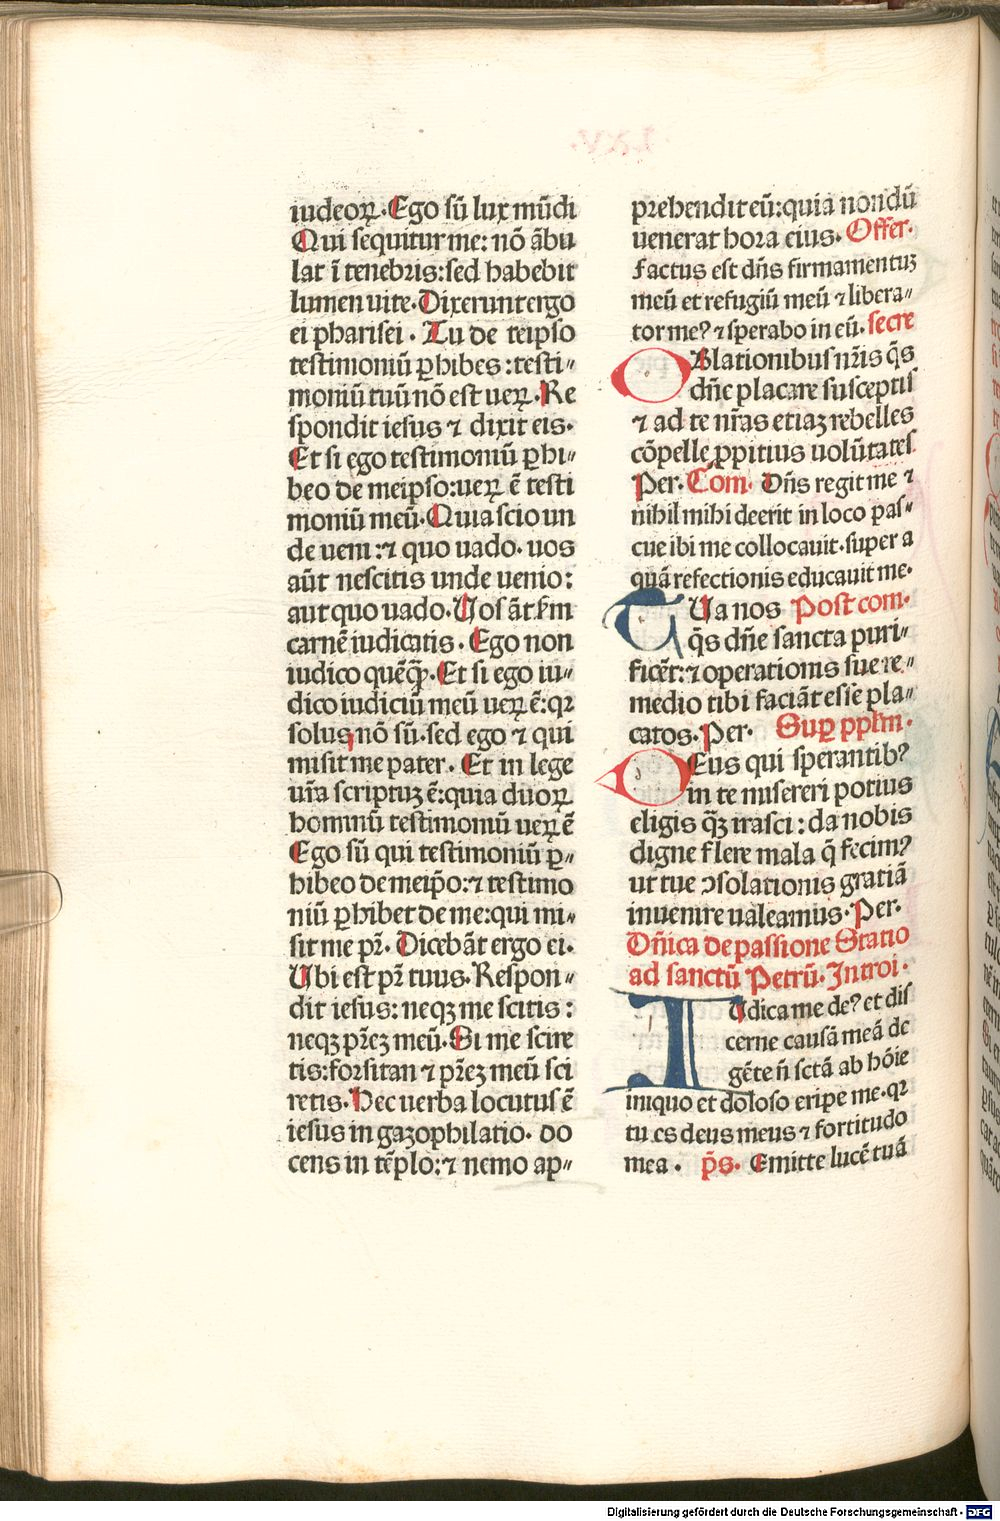 iudeoꝝ. Ego sū lux mūdi
Qui sequitur me: nō ābu
lat ī tenebris: sed habebit
lumen uite. Dixerunt ergo
ei pharisei. Tu de teipso
testimoniū ꝑhibes: testi⸗
moniū tuū nō est ueꝝ. Re
spondit iesus ⁊ dixit eis.
Et si ego testimoniū ꝑhi⸗
beo de meipso: ueꝝ ē testi
moniū meū. Quia scio un
de ueni: ⁊ quo uado. uos
aūt nescitis unde uenio:
aut quo uado. Uos āt ẜm
carnē iudicatis. Ego non
iudico quēqꝫ. Et si ego iu⸗
dico iudiciū meū ueꝝ ē: qꝛ
solus nō sū. sed ego ⁊ qui
misit me pater. Et in lege
ur̄a scriptuꝫ ē: quia duoꝝ
hominū testimoniū ueꝝ ē
Ego sū qui testimoniū ꝑ⸗
hibeo de meip̄o: ⁊ testimo
niū ꝑhibet de me: qui mi⸗
sit me pr̄. Dicebāt ergo ei.
Ubi est pr̄ tuus. Respon⸗
dit iesus: neqꝫ me scitis:
neqꝫ pr̄eꝫ meū. Si me scire
tis: forsitan ⁊ pr̄eꝫ meū sci
retis. Hec uerba locutus ē
iesus in gazophilatio. do
cens in tēplo: ⁊ nemo ap⸗
prehendit eū: quia nondū
uenerat hora eius. Offer.
Factus est dn̄s firmamentuꝫ
meū et refugiū meū ⁊ libera⸗
tor meꝰ ⁊ sperabo in eū. secre
OBlationibus nr̄is q̄s
dn̄e placare susceptis
⁊ ad te nr̄as etiaꝫ rebelles
cōpelle ꝓpitius uolūtates.
Per. Com. Dn̄s regit me ⁊
nihil mihi deerit in loco pas⸗
cue ibi me collocauit. super a
quā refectionis educauit me.
TUa nos Post com.
q̄s dn̄e sancta puri⸗
ficēt: ⁊ operationis sue re⸗
medio tibi faciāt esse pla⸗
catos. Per. Suꝑ pplm̄.
DEus qui sperantibꝰ
in te misereri potius
eligis qꝫ irasci: da nobis
digne flere mala q̄ fecimꝰ
ut tue ↄsolationis gratiā
inuenire ualeamus. Per.
Dn̄ica de passione Statio
ad sanctū Petrū. Introi.
IUdica me deꝰ et dis
cerne causā meā de
gēte n̄ sctā ab hōie
iniquo et doloso eripe me. qꝛ
tu es deus meus ⁊ fortitudo
mea. p̄s. Emitte lucē tuā
Digitalisierung gefördert durch die Deutsche Forschungsgemeinschaft - DFG